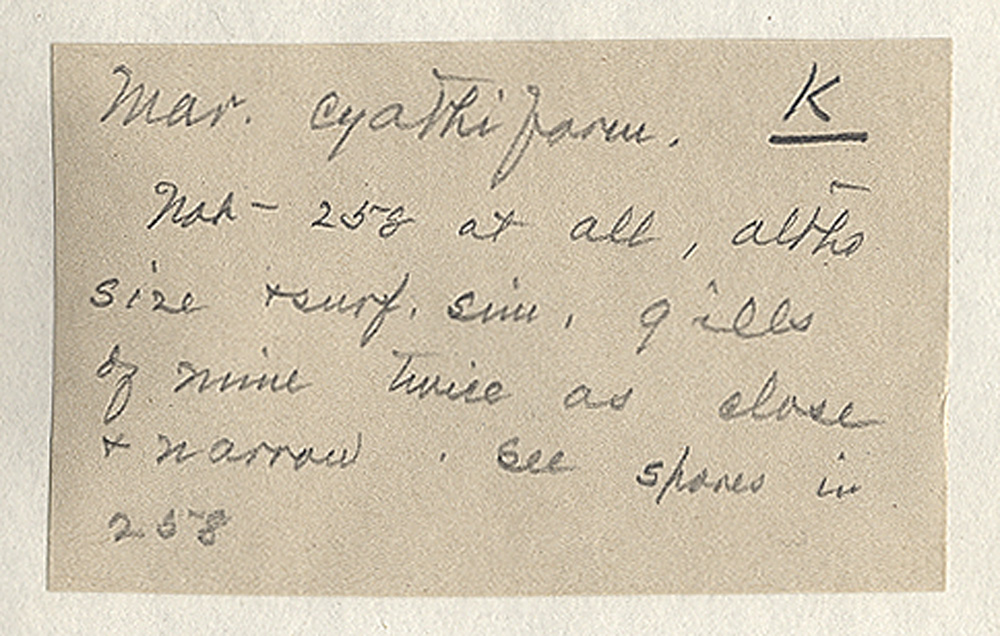 Mar. cyathiform. K
Not - 258 at all, altho
size + surf. sim, gills
of mine twice as close
+ narrow. See spores in
258